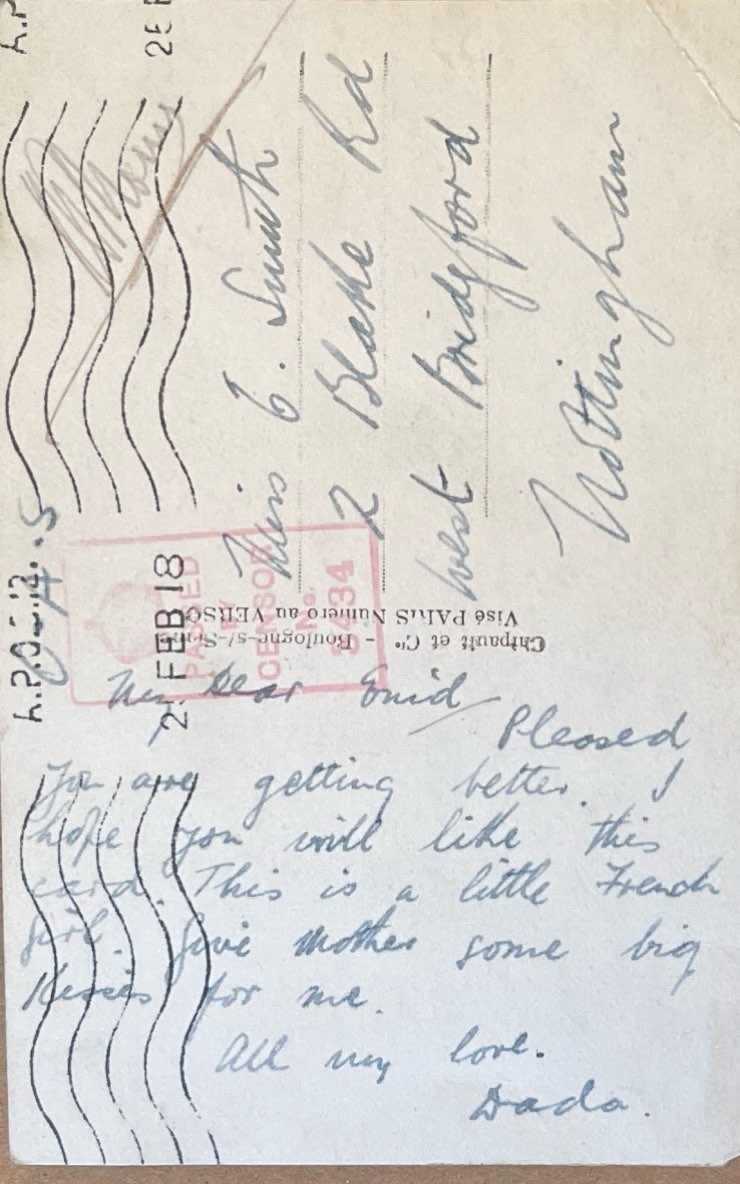 My Dear Enid
Pleased
you are getting better. I
hope you will like this
card. This is a little French
girl. Give Mother some big
Kisses for me.
All my love.
Dada.
Miss E. Smith
2 Blake Rd
West Bridgford
Nottingham
PASSED
BY
CENSOR
No.
5434
FEB 18
25 F
A.P.O.S.12.
A.P
Chipault et Cie - Boulogne-s/-Seine
Visé PARIS Numéro au VERSO